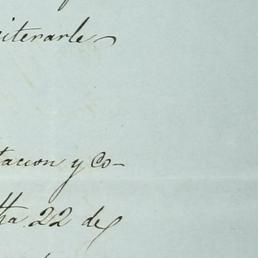 iterarle
tacion y Co-
ha 22 de